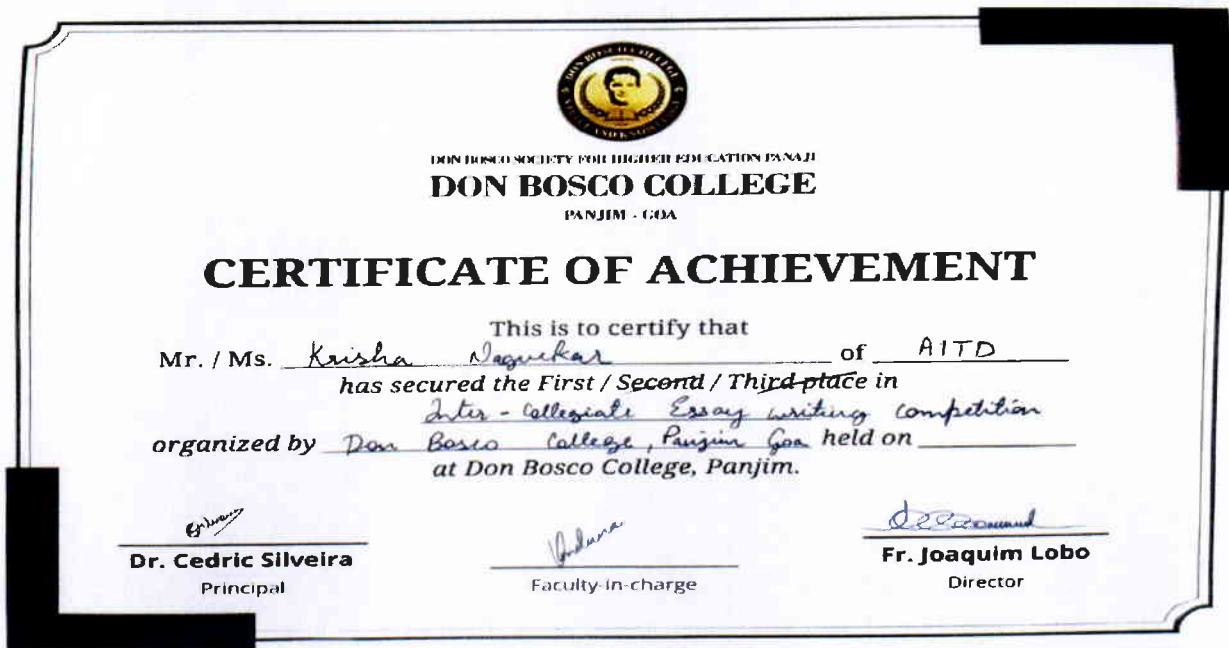 DON BOSCO COLLEGE
DON BOSCO SOCIETY FOR HIGHER EDUCATION PANAJI
DON BOSCO COLLEGE
PANJIM - GOA
CERTIFICATE OF ACHIEVEMENT
This is to certify that
Mr. / Ms. Krisha Naguekar of AITD
has secured the First / Second / Third place in
Inter - Collegiate Essay writing competition
organized by Don Bosco College, Panjim Goa held on
at Don Bosco College, Panjim.
Dr. Cedric Silveira
Principal
Faculty-in-charge
Fr. Joaquim Lobo
Director